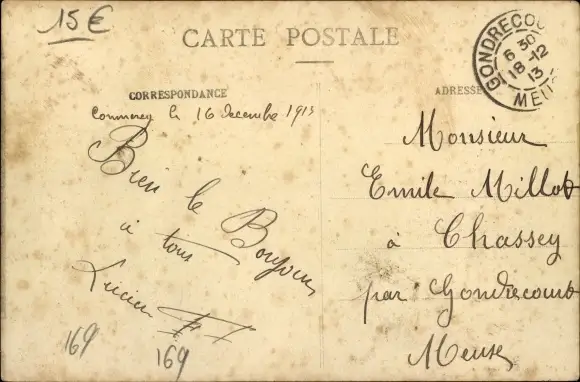 15 €
CARTE POSTALE
CORRESPONDANCE
ADRESSE
GONDRECOU
6 30
18-12
13
MEUSE
Commercy le 16 décembre 1913
Bien le Bonjour
à tous
Lucien
169
169
Monsieur
Emile Millot
à Chassey
par Gondrecourt
Meuse